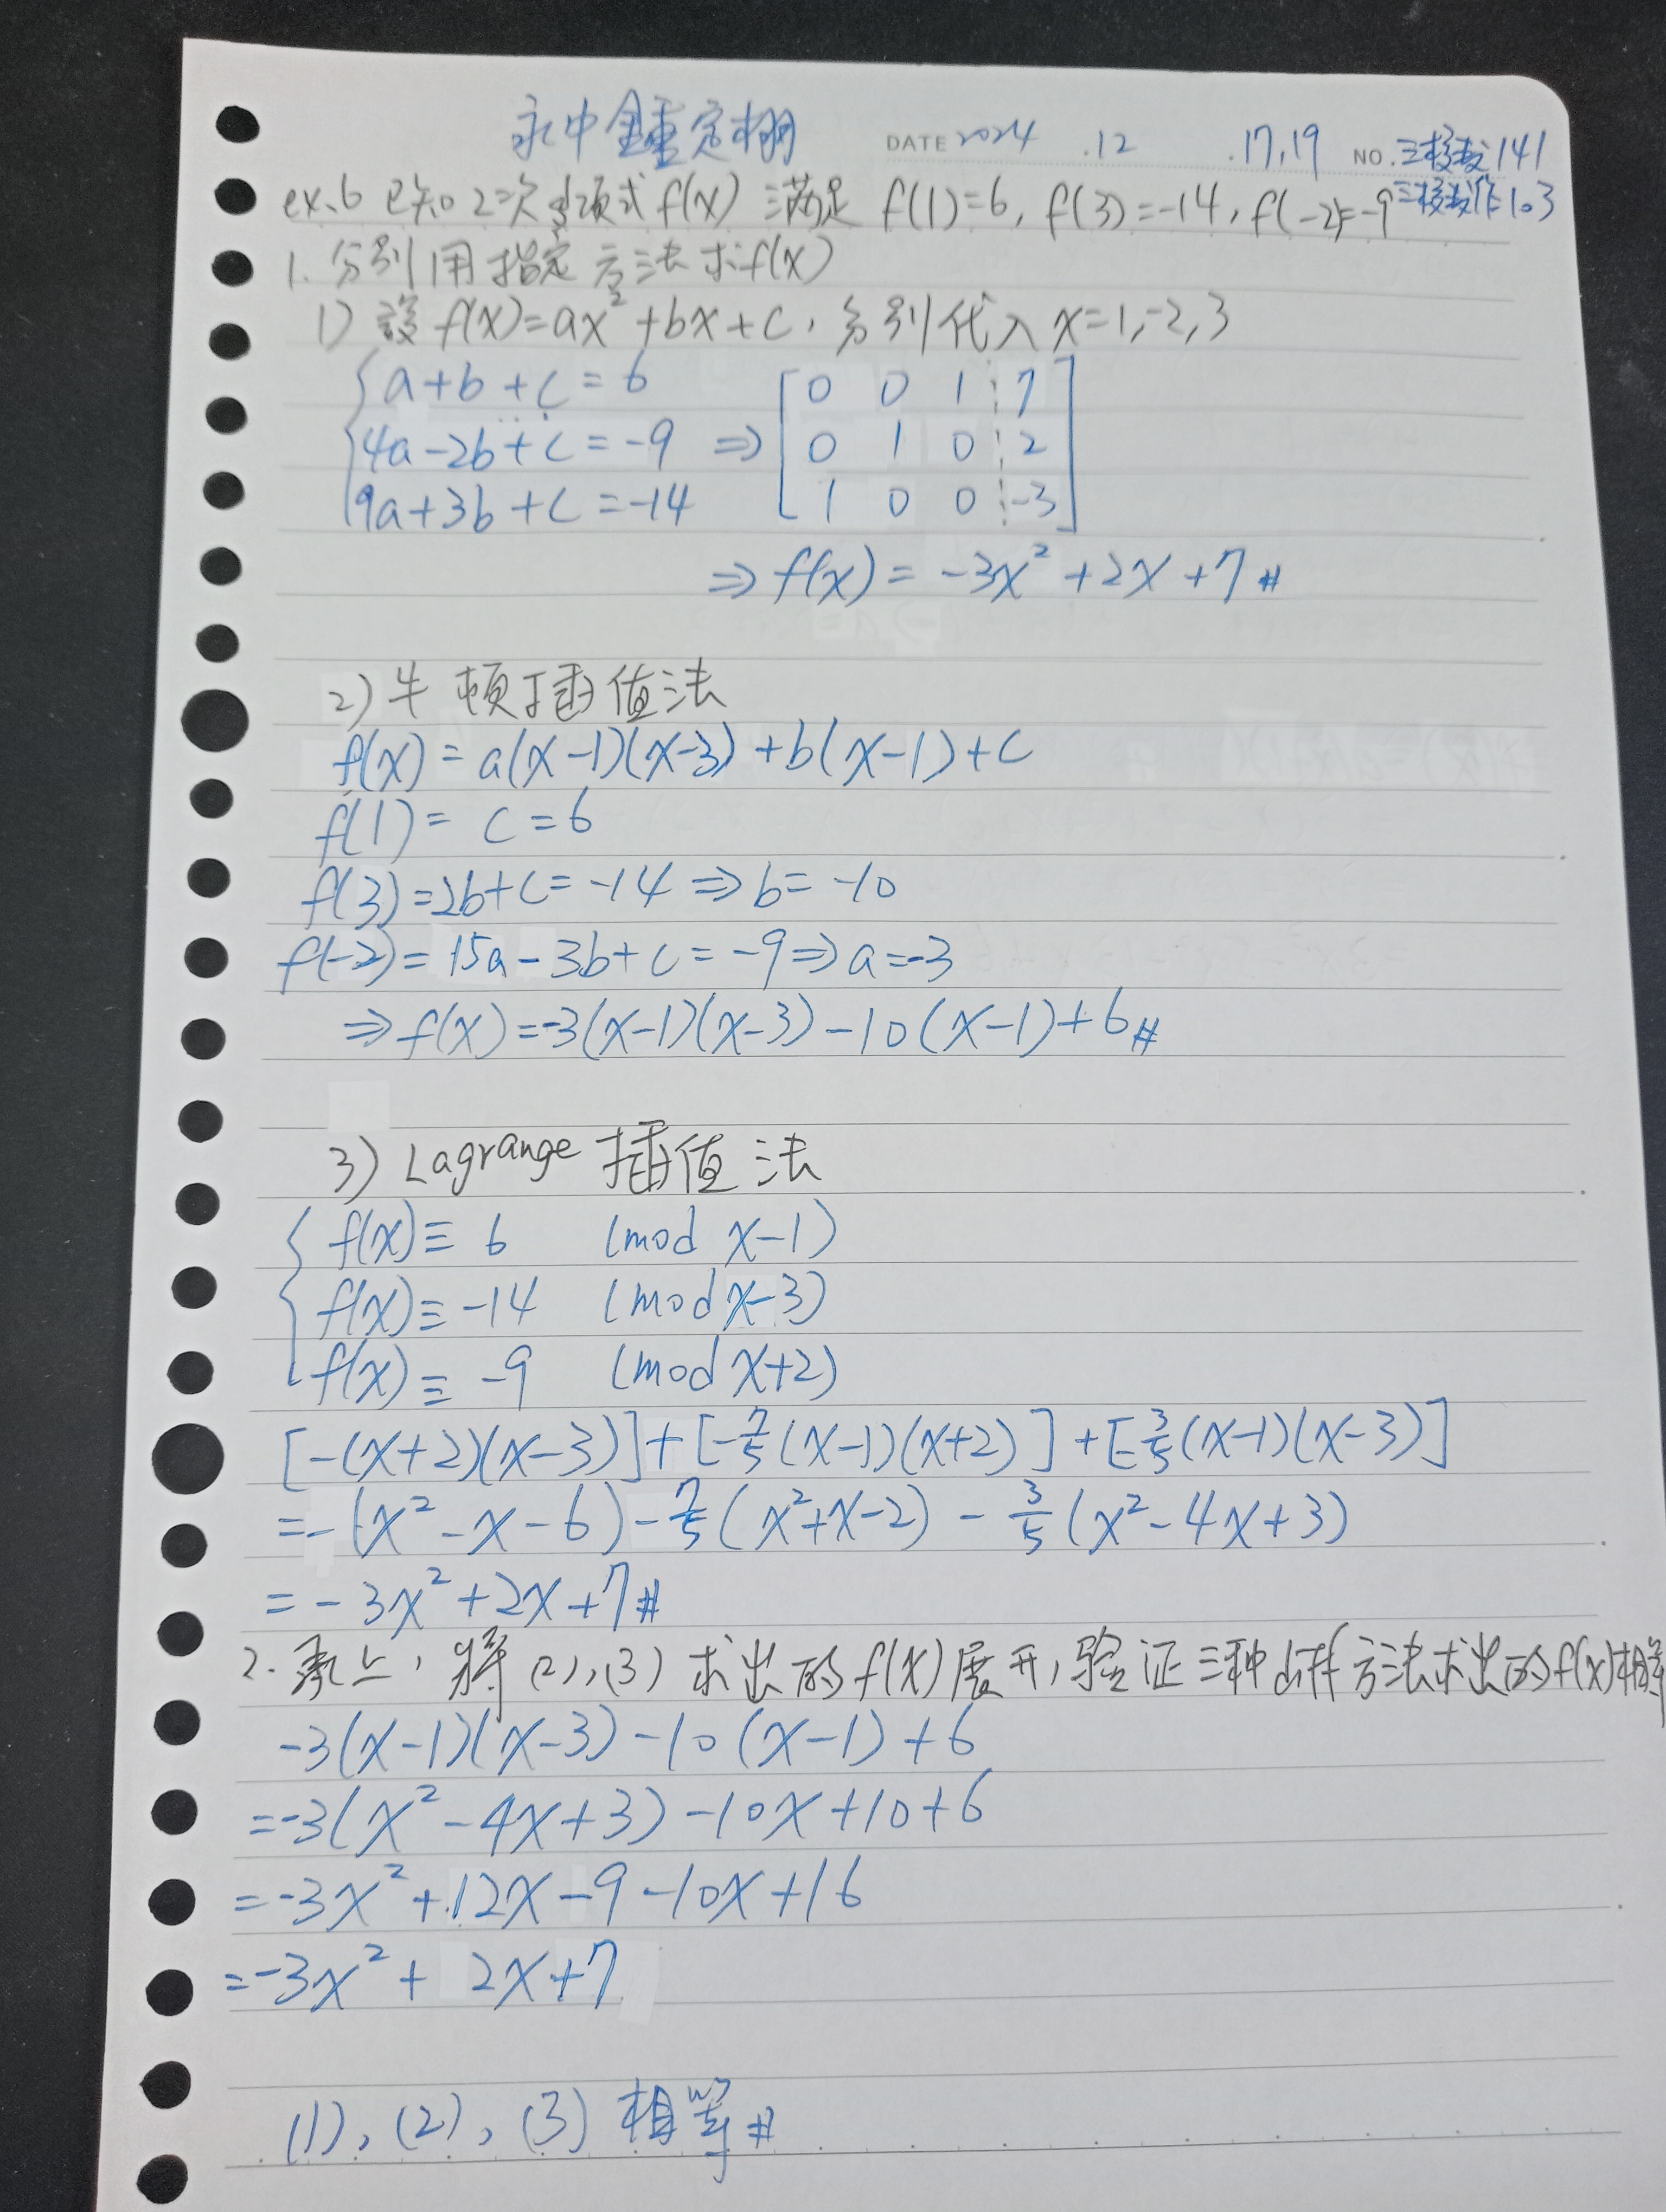 永中鍾定栩
DATE 2024 .12 .17,19 NO. 三核數 141
ex.6 已知2次多项式 f(x) 满足 f(1)=6, f(3)=-14, f(-2)=-9 三核數作 103
1. 分别用指定方法求f(x)
1) 設 f(x)=ax²+bx+c, 分别代入 x=1,-2,3
{a+b+c=6
4a-2b+c=-9
9a+3b+c=-14
⇒ [0 0 1 ⋮ 7
0 1 0 ⋮ 2
1 0 0 ⋮ -3]
⇒ f(x) = -3x²+2x+7 #
2) 牛顿插值法
f(x) = a(x-1)(x-3)+b(x-1)+c
f(1) = c = 6
f(3)=2b+c=-14 ⇒ b=-10
f(-2) = 15a-3b+c = -9 ⇒ a=-3
⇒ f(x)=-3(x-1)(x-3)-10(x-1)+6 #
3) Lagrange 插值法
{f(x) ≡ 6 (mod x-1)
f(x) ≡ -14 (mod x-3)
f(x) ≡ -9 (mod x+2)
[-(x+2)(x-3)]+[-7/5(x-1)(x+2)]+[-3/5(x-1)(x-3)]
=-(x²-x-6)-7/5(x²+x-2)-3/5(x²-4x+3)
=-3x²+2x+7 #
2. 承上, 将 (2),(3) 求出的 f(x) 展开, 验证三种方法求出的f(x)相等
-3(x-1)(x-3)-10(x-1)+6
=-3(x²-4x+3)-10x+10+6
=-3x²+12x-9-10x+16
=-3x²+2x+7
(1), (2), (3) 相等 #